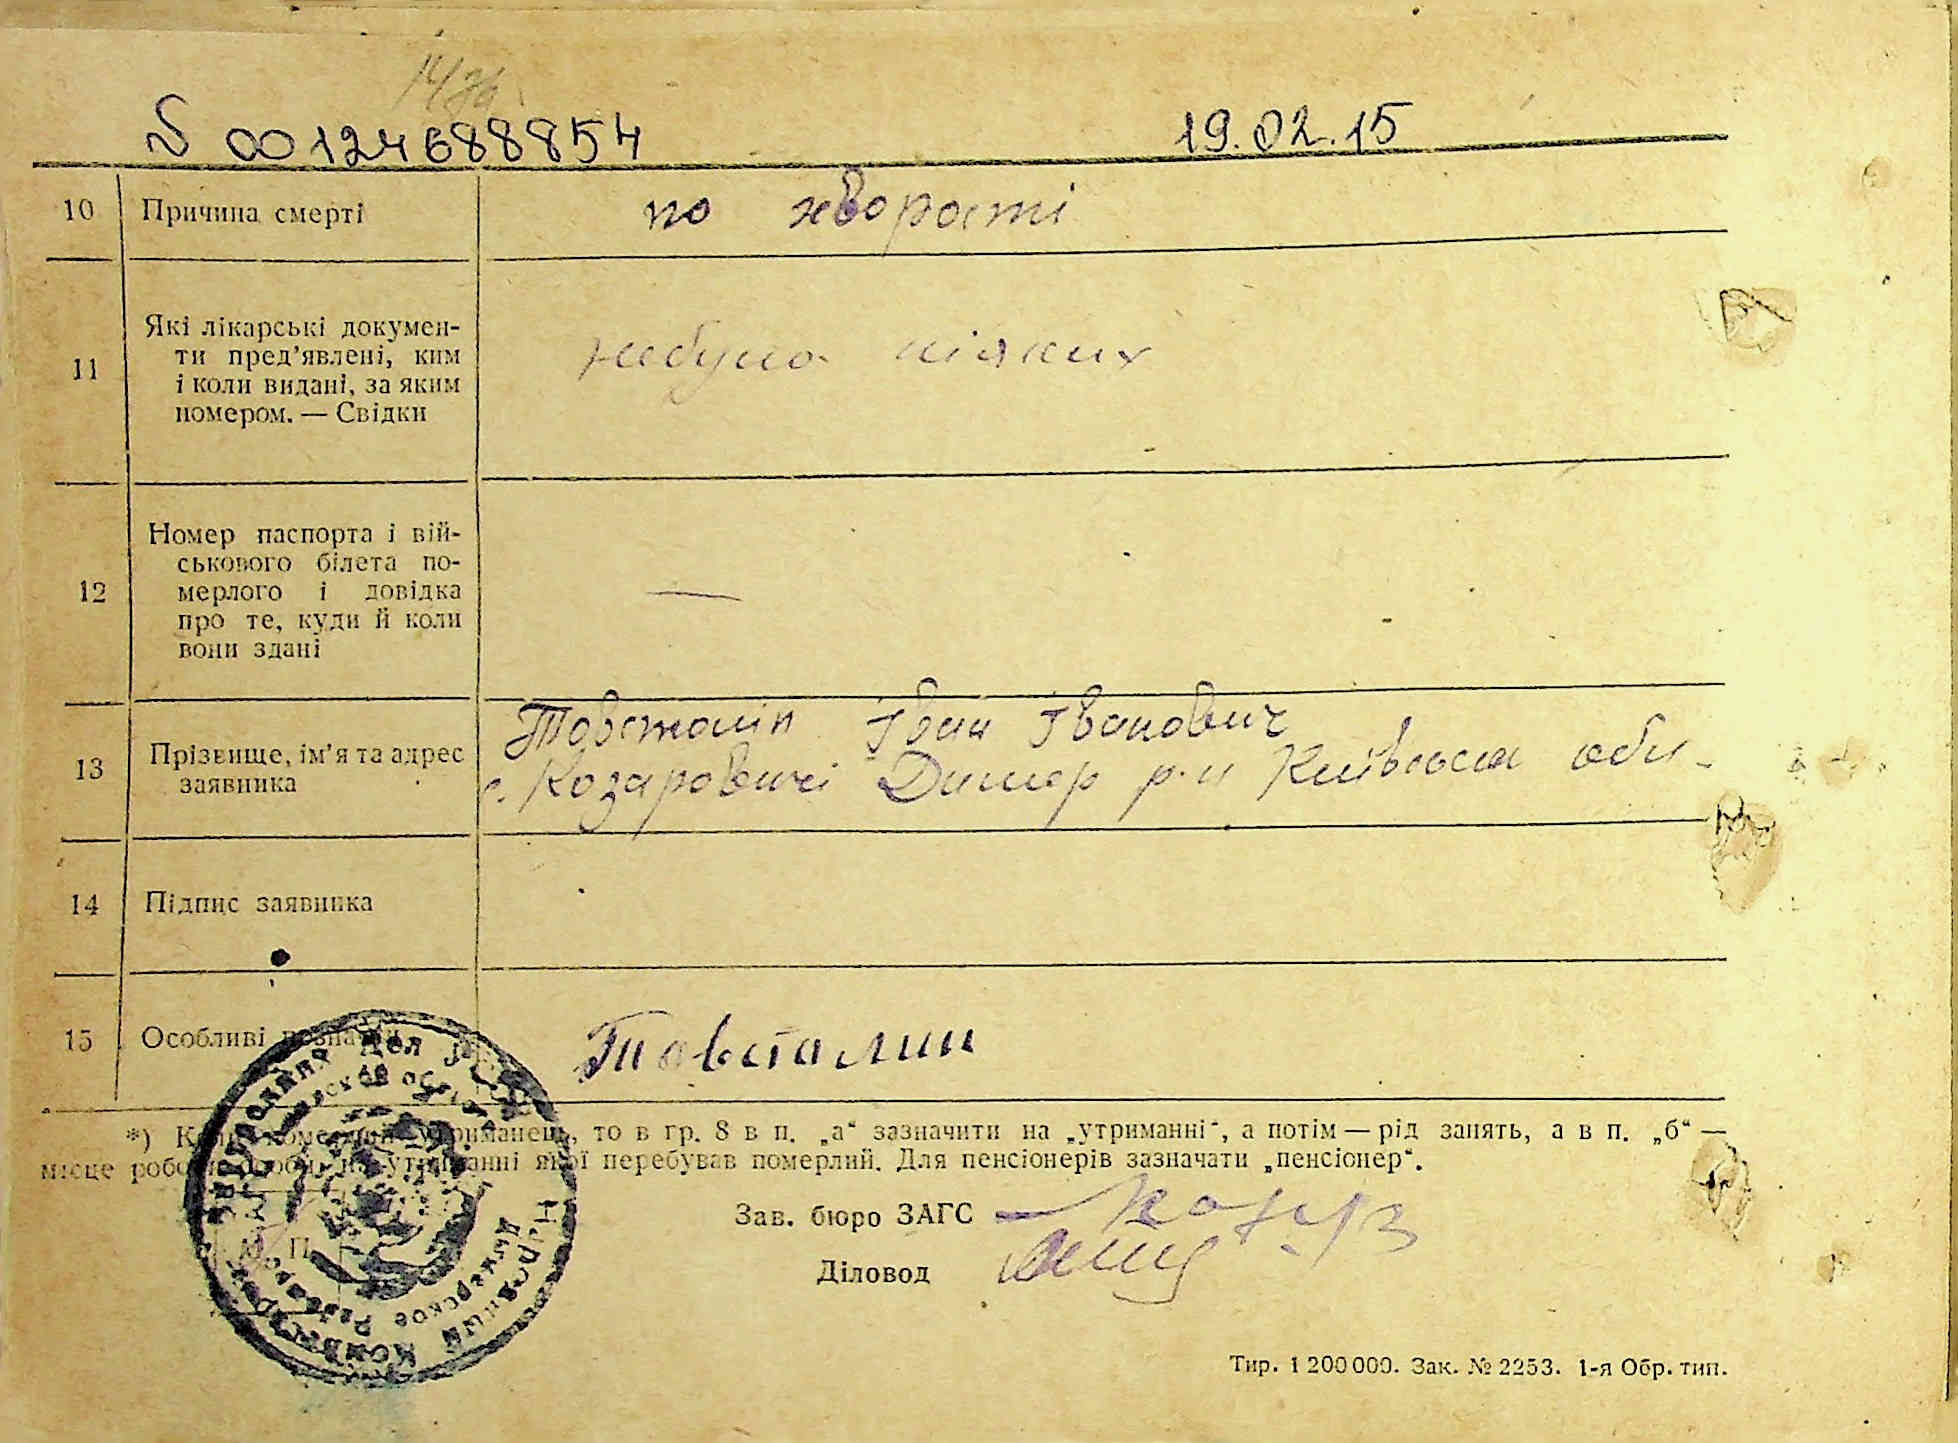 00124688854 19.02.15
10 Причина смерті по хворості
11 Які лікарські докумен-
ти пред’явлені, ким
і коли видані, за яким
номером. — Свідки
небуло ніяких
12 Номер паспорта і вій-
ськового білета по-
мерлого і довідка
про те, куди й коли
вони здані
—
13 Прізвище, ім’я та адрес
заявника
Товсталін Іван Іванович
с. Козаровичі Димер р-н Київська обл.
14 Підпис заявника
15 Особливі познаки Товсталин
*) Коли померлий утриманець, то в гр. 8 в п. „а“ зазначити на „утриманні“, а потім — рід занять, а в п. „б“ —
місце роботи особи, на утриманні якої перебував померлий. Для пенсіонерів зазначати „пенсіонер“.
Зав. бюро ЗАГС
Діловод
М. П.
Народный Комиссариат Внутренних Дел
Димерское
Тир. 1 200 000. Зак. № 2253. 1-я Обр. тип.